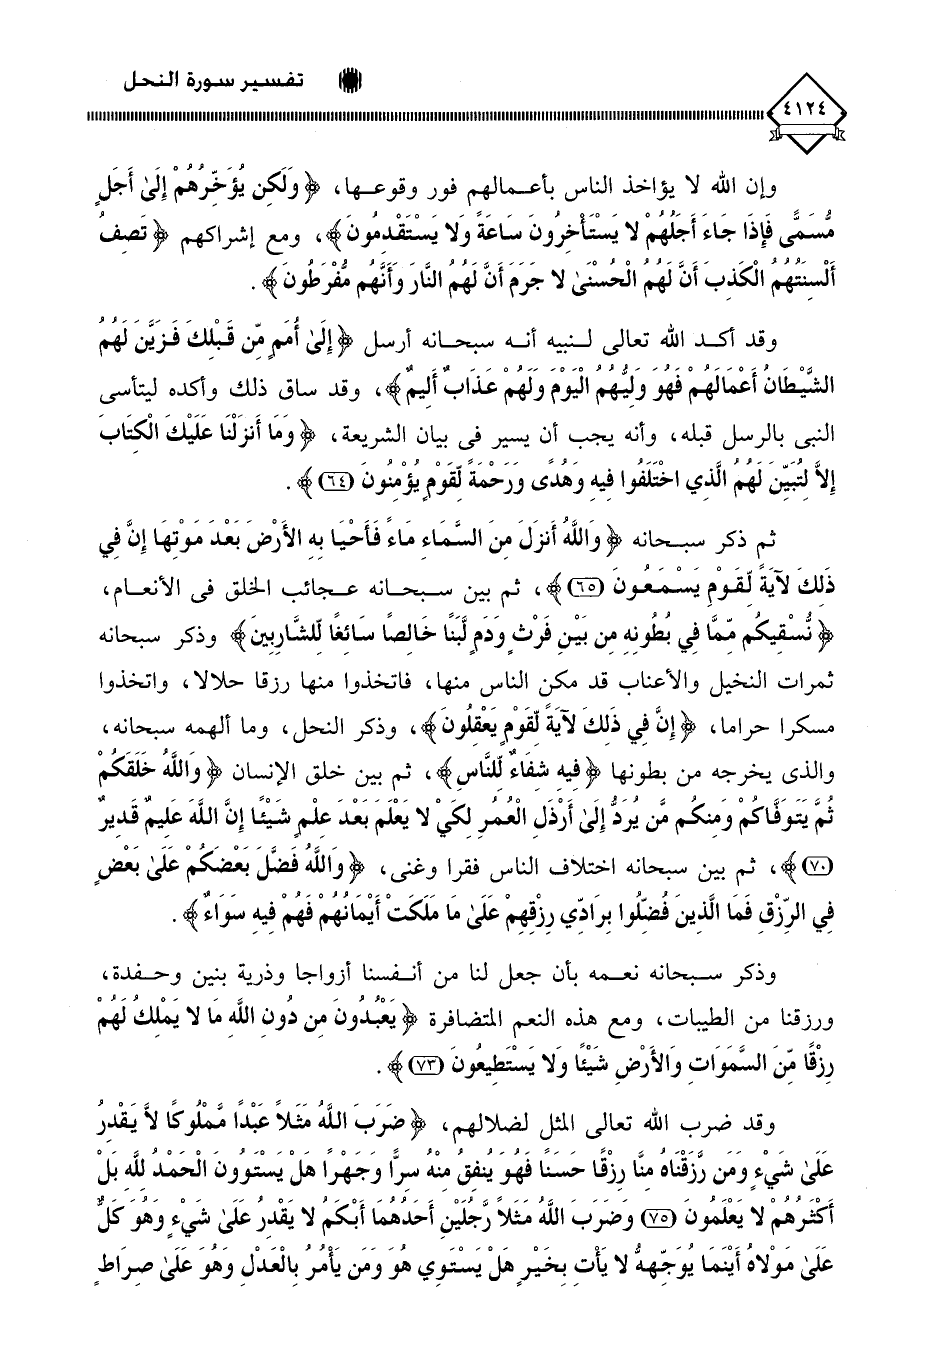 تفسير سورة النحل
٤١٢٤
وإن الله لا يؤاخذ الناس بأعمالهم فور وقوعها، ﴿ وَلَكِن يُؤَخِّرُهُمْ إِلَىٰ أَجَلٍ
مُّسَمًّى فَإِذَا جَاءَ أَجَلُهُمْ لا يَسْتَأْخِرُونَ سَاعَةً وَلا يَسْتَقْدِمُونَ ﴾، ومع إشراكهم ﴿ تَصِفُ
أَلْسِنَتُهُمُ الْكَذِبَ أَنَّ لَهُمُ الْحُسْنَىٰ لا جَرَمَ أَنَّ لَهُمُ النَّارَ وَأَنَّهُم مُّفْرَطُونَ ﴾ .
وقد أكد الله تعالى لنبيه أنه سبحانه أرسل ﴿ إِلَىٰ أُمَمٍ مِّن قَبْلِكَ فَزَيَّنَ لَهُمُ
الشَّيْطَانُ أَعْمَالَهُمْ فَهُوَ وَلِيُّهُمُ الْيَوْمَ وَلَهُمْ عَذَابٌ أَلِيمٌ ﴾، وقد ساق ذلك وأكده ليتأسى
النبى بالرسل قبله، وأنه يجب أن يسير فى بيان الشريعة، ﴿ وَمَا أَنزَلْنَا عَلَيْكَ الْكِتَابَ
إِلاَّ لِتُبَيِّنَ لَهُمُ الَّذِي اخْتَلَفُوا فِيهِ وَهُدًى وَرَحْمَةً لِّقَوْمٍ يُؤْمِنُونَ (٦٤) ﴾ .
ثم ذكر سبحانه ﴿ وَاللَّهُ أَنزَلَ مِنَ السَّمَاءِ مَاءً فَأَحْيَا بِهِ الأَرْضَ بَعْدَ مَوْتِهَا إِنَّ فِي
ذَلِكَ لآيَةً لِّقَوْمٍ يَسْمَعُونَ (٦٥) ﴾، ثم بين سبحانه عجائب الخلق فى الأنعام،
﴿ نُسْقِيكُم مِّمَّا فِي بُطُونِهِ مِن بَيْنِ فَرْثٍ وَدَمٍ لَّبَنًا خَالِصًا سَائِغًا لِّلشَّارِبِينَ ﴾ وذكر سبحانه
ثمرات النخيل والأعناب قد مكن الناس منها، فاتخذوا منها رزقا حلالا، واتخذوا
مسكرا حراما، ﴿ إِنَّ فِي ذَلِكَ لآيَةً لِّقَوْمٍ يَعْقِلُونَ ﴾، وذكر النحل، وما ألهمه سبحانه،
والذى يخرجه من بطونها ﴿ فِيهِ شِفَاءٌ لِّلنَّاسِ ﴾، ثم بين خلق الإنسان ﴿ وَاللَّهُ خَلَقَكُمْ
ثُمَّ يَتَوَفَّاكُمْ وَمِنكُم مَّن يُرَدُّ إِلَىٰ أَرْذَلِ الْعُمُرِ لِكَيْ لا يَعْلَمَ بَعْدَ عِلْمٍ شَيْئًا إِنَّ اللَّهَ عَلِيمٌ قَدِيرٌ
(٧٠) ﴾، ثم بين سبحانه اختلاف الناس فقرا وغنى، ﴿ وَاللَّهُ فَضَّلَ بَعْضَكُمْ عَلَىٰ بَعْضٍ
فِي الرِّزْقِ فَمَا الَّذِينَ فُضِّلُوا بِرَادِّي رِزْقِهِمْ عَلَىٰ مَا مَلَكَتْ أَيْمَانُهُمْ فَهُمْ فِيهِ سَوَاءٌ ﴾ .
وذكر سبحانه نعمه بأن جعل لنا من أنفسنا أزواجا وذرية بنين وحفدة،
ورزقنا من الطيبات، ومع هذه النعم المتضافرة ﴿ يَعْبُدُونَ مِن دُونِ اللَّهِ مَا لا يَمْلِكُ لَهُمْ
رِزْقًا مِّنَ السَّمَوَاتِ وَالأَرْضِ شَيْئًا وَلا يَسْتَطِيعُونَ (٧٣) ﴾ .
وقد ضرب الله تعالى المثل لضلالهم، ﴿ ضَرَبَ اللَّهُ مَثَلاً عَبْدًا مَّمْلُوكًا لاَّ يَقْدِرُ
عَلَىٰ شَيْءٍ وَمَن رَّزَقْنَاهُ مِنَّا رِزْقًا حَسَنًا فَهُوَ يُنفِقُ مِنْهُ سِرًّا وَجَهْرًا هَلْ يَسْتَوُونَ الْحَمْدُ لِلَّهِ بَلْ
أَكْثَرُهُمْ لا يَعْلَمُونَ (٧٥) وَضَرَبَ اللَّهُ مَثَلاً رَّجُلَيْنِ أَحَدُهُمَا أَبْكَمُ لا يَقْدِرُ عَلَىٰ شَيْءٍ وَهُوَ كَلٌّ
عَلَىٰ مَوْلاهُ أَيْنَمَا يُوَجِّههُّ لا يَأْتِ بِخَيْرٍ هَلْ يَسْتَوِي هُوَ وَمَن يَأْمُرُ بِالْعَدْلِ وَهُوَ عَلَىٰ صِرَاطٍ